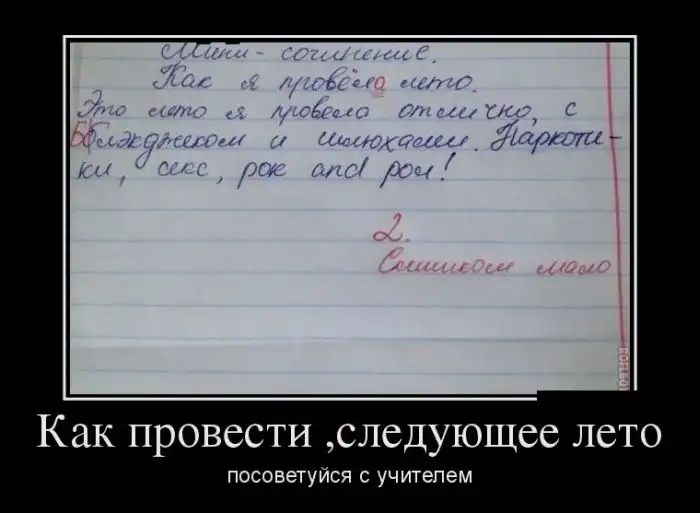 Мини - сочинение.
Как я провёла лето.
Это лето я провела отлично, с
Бблэкджеком и шлюхами. Наркоти-
ки, секс, рок and рол!
2.
Слишком мало
Как провести ,следующее лето
посоветуйся с учителем